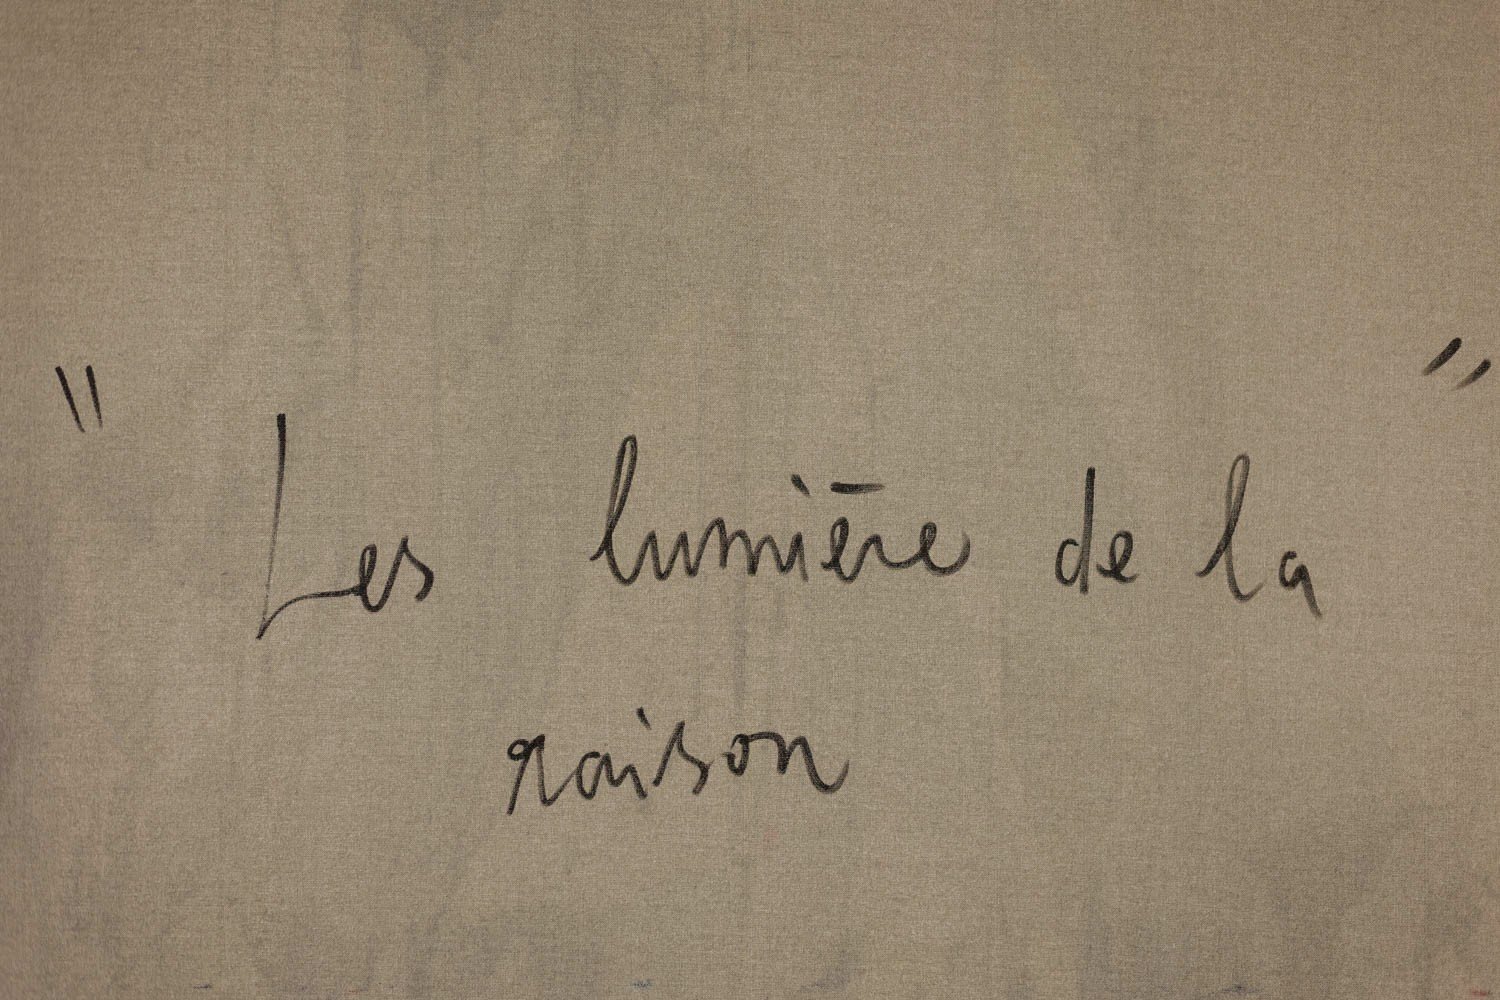 " Les lumière de la "
raison